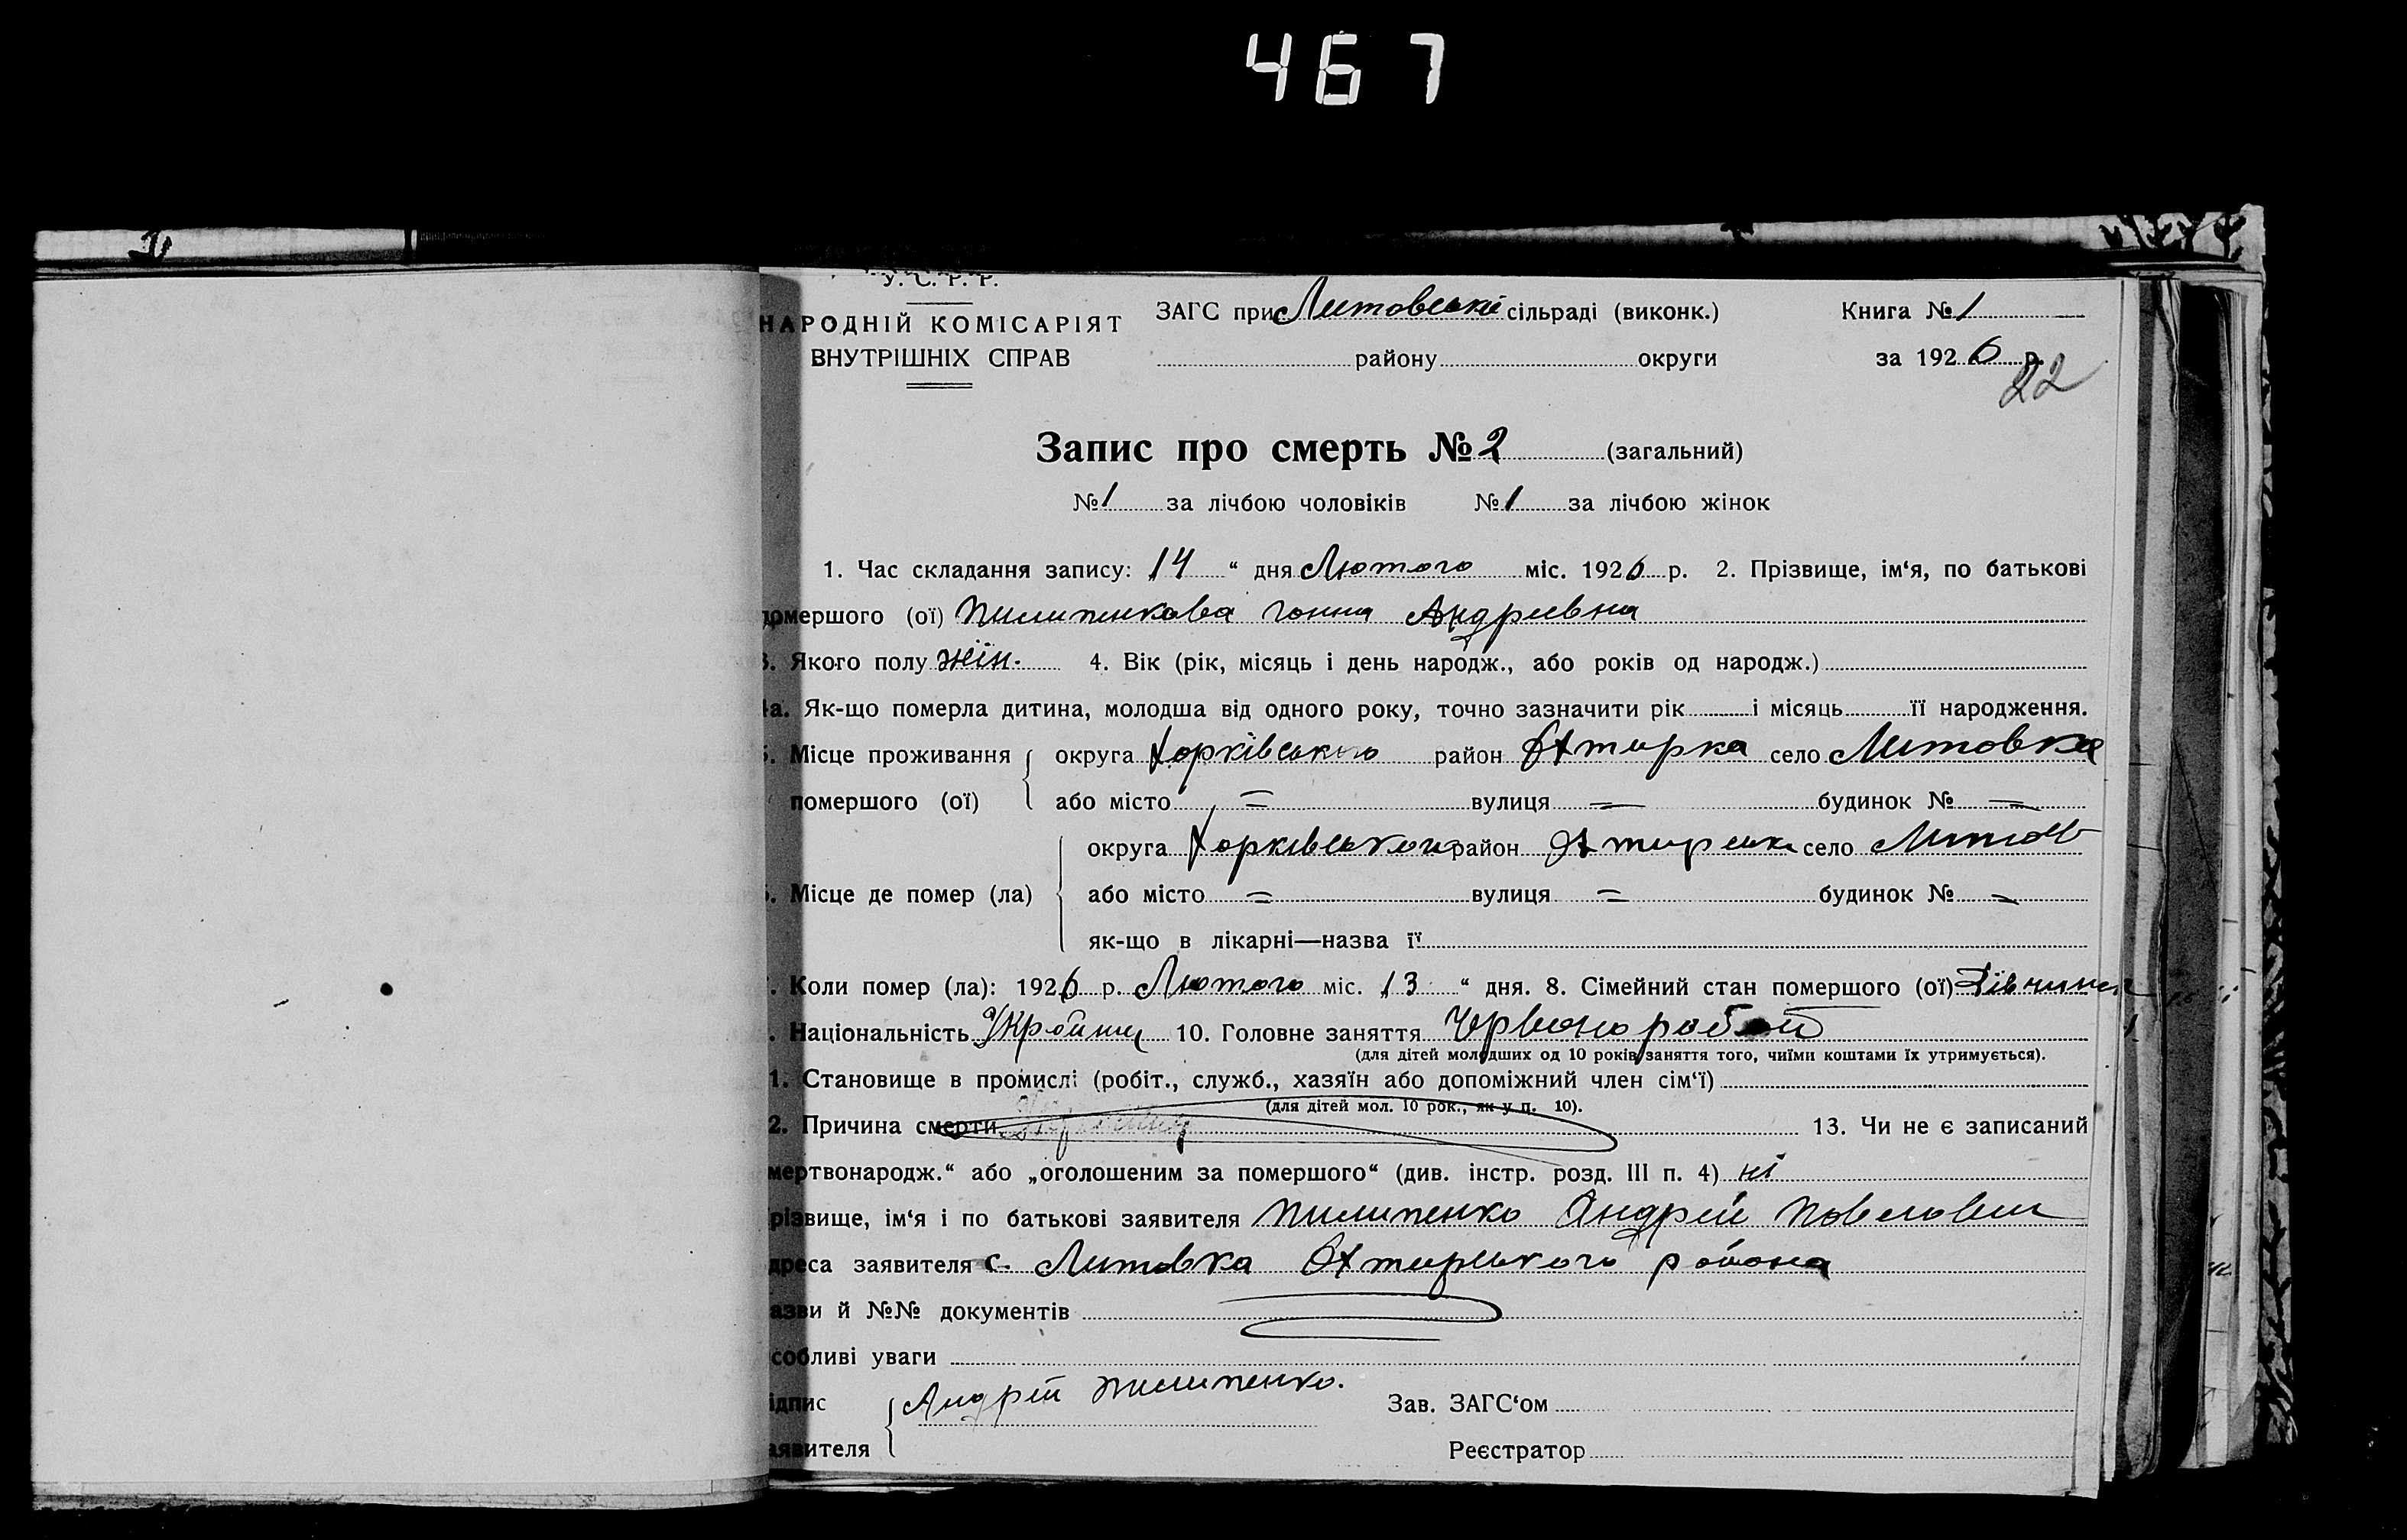 467
У. С. Р. Р.
НАРОДНІЙ КОМІСАРІЯТ
ВНУТРІШНІХ СПРАВ
ЗАГС при Литовські сільраді (виконк.)
района округи
Книга № 1
за 1926 р.
22
Запис про смерть № 2 (загальний)
№ 1 за лічбою чоловіків № 1 за лічбою жінок
1. Час складання запису: 14 “ дня Лютого міс. 1926 р. 2. Прізвище, ім‘я, по батькові
помершого (ої) Пилипенкова Ганна Андреевна
3. Якого полу жін. 4. Вік (рік, місяць і день народж., або років од народж.)
4а. Як-що померла дитина, молодша від одного року, точно зазначити рік і місяць її народження.
5. Місце проживання округа Харківського район Охтирка село Литовка
помершого (ої) або місто = вулиця = будинок № =
округа Харківського район село Литов
6. Місце де помер (ла) або місто = вулиця = будинок № =
як-що в лікарні—назва її
7. Коли помер (ла): 1926 р. Лютого міс. 13 “ дня. 8. Сімейний стан помершого (ої) Дівчина
. Національність 10. Головне заняття
(для дітей молодших од 10 років заняття того, чиїми коштами їх утримується).
1. Становище в промислі (робіт., служб., хазяїн або допоміжний член сім‘ї)
(для дітей мол. 10 рок., як у п. 10).
2. Причина смерти 13. Чи не є записаний
мертвонародж.“ або „оголошеним за помершого“ (див. інстр. розд. III п. 4) ні
різвище, ім‘я і по батькові заявителя Пилипенко Андрей Павелович
дреса заявителя с. Литовка Охтирського района
азви й №№ документів
собливі уваги
ідпис Андрій Пилипенко. Зав. ЗАГС‘ом
аявителя Реєстратор